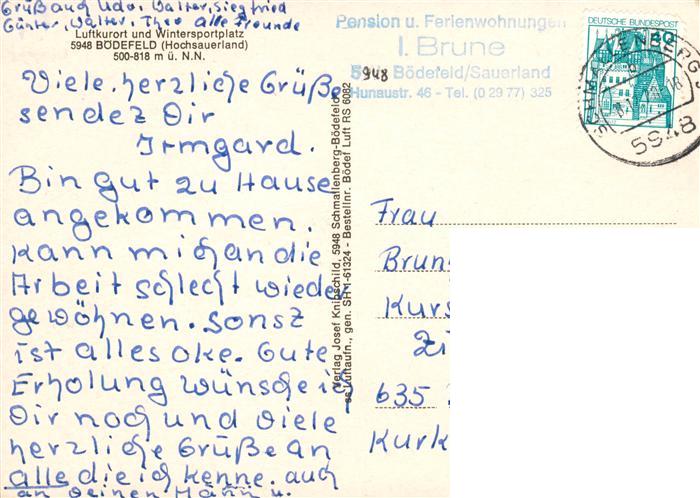 Grüß auch Udo, Walter, Siegfried
Günter, Walter, Theo alle Freunde
Luftkurort und Wintersportplatz
5948 BÖDEFELD (Hochsauerland)
500-818 m ü. N.N.
Viele herzliche Grüße
sendet Dir
Irmgard.
Bin gut zu Hause
angekommen.
Kann mich an die
Arbeit schlecht wieder
gewöhnen. Sonst
ist alles oke. Gute
Erholung wünsche ich
Dir noch und viele
herzliche Grüße an
alle die ich kenne. auch
an Deinen Mann u.
Verlag Josef Knipschild, 5948 Schmallenberg-Bödefeld
ss Luftaufn., gen. SH 1-61324 - Bestellnr. Bödef Luft RS 6082
Pension u. Ferienwohnungen
I. Brune
5948 Bödefeld/Sauerland
Hunaustr. 46 - Tel. (0 29 77) 325
5948
DEUTSCHE BUNDESPOST
40
SCHMALLENBERG
5948
Frau
Brun
Kurs
Zi
635
Kurk